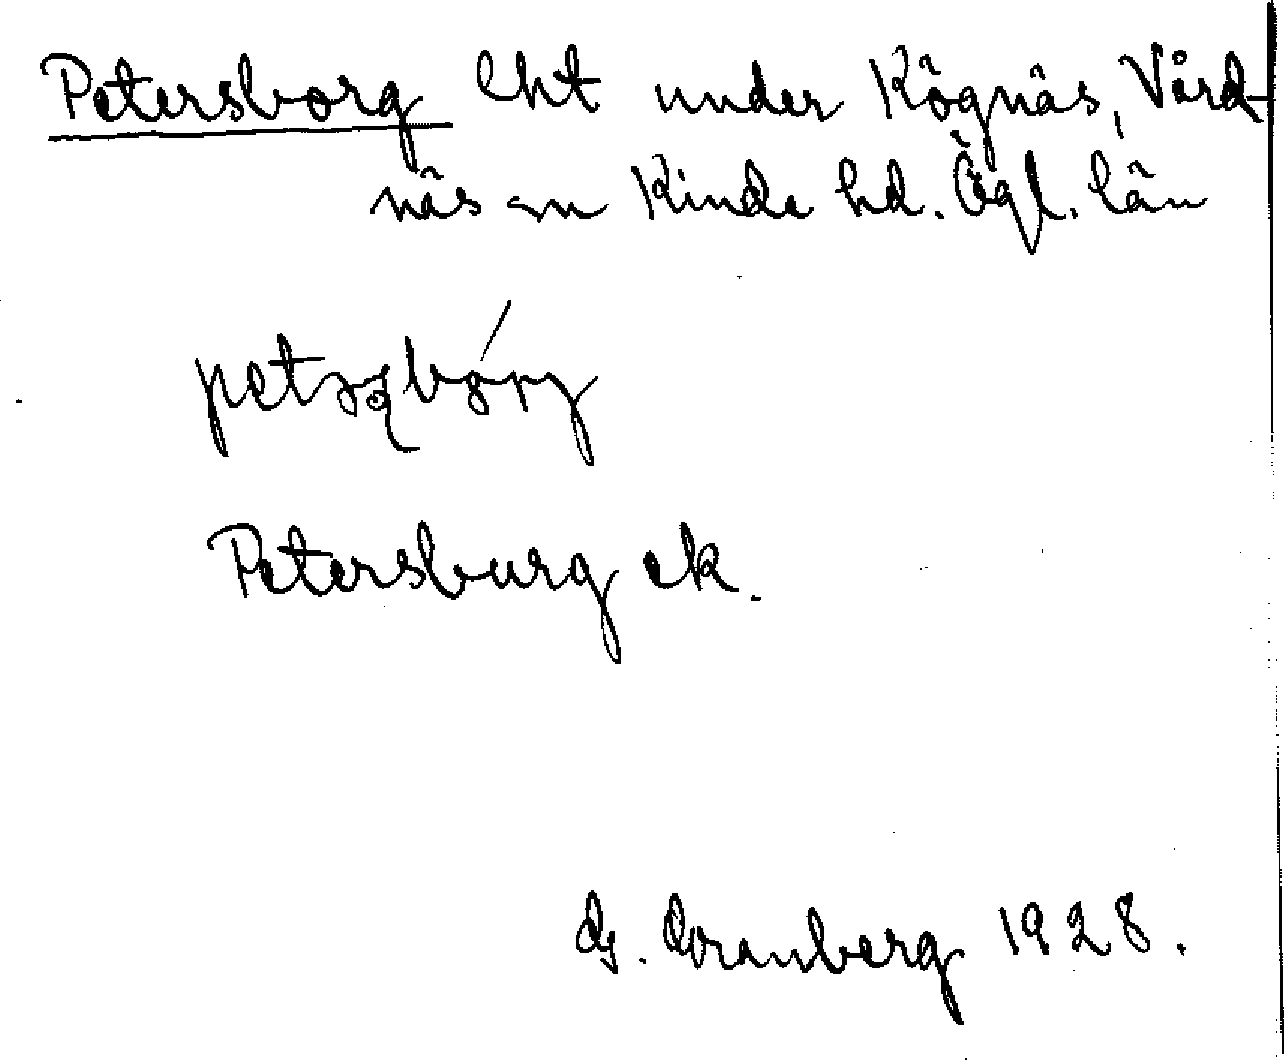 Petersborg lht under Kögnäs, Vård-
näs sn Kinda hd. Ögl. län
Petersburg ek.
G. Granberg 1928.